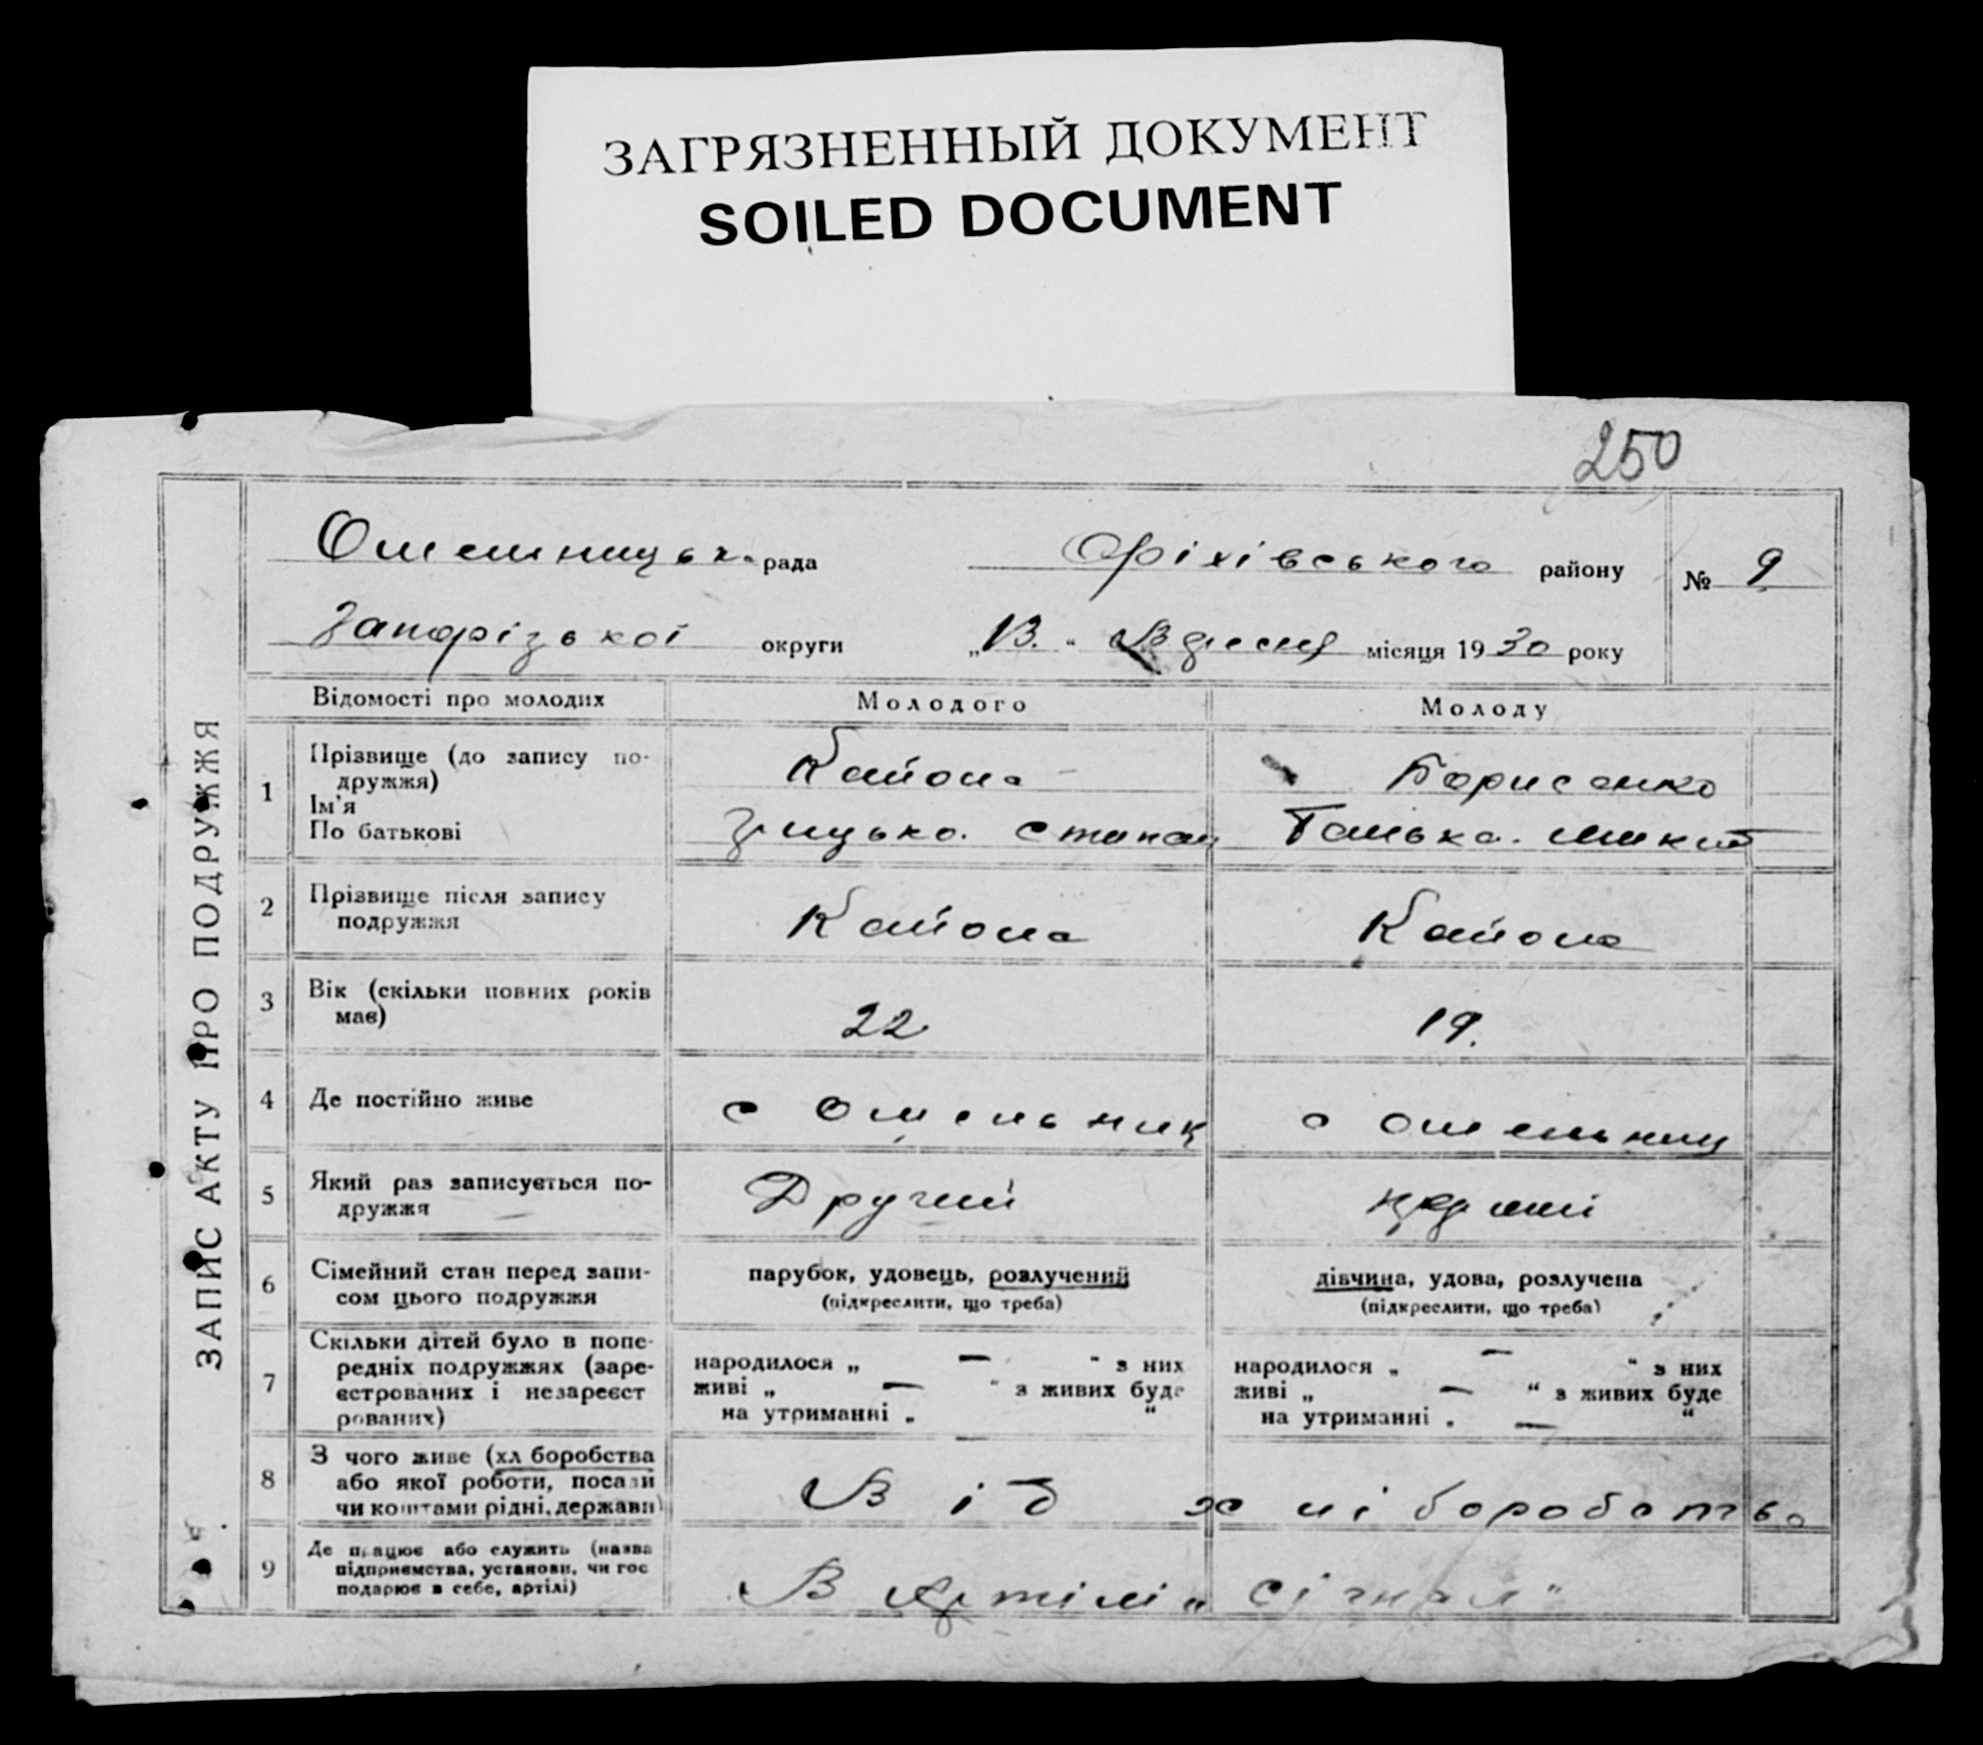 ЗАГРЯЗНЕННЫЙ ДОКУМЕНТ
SOILED DOCUMENT
250
ЗАПИС АКТУ ПРО ПОДРУЖЖЯ
рада Оріхівського району № 9
Запорізької округи „13.“ Вресня місяця 1930 року
Відомості про молодих Молодого Молоду
1 Прізвище (до запису по-
дружжя)
Ім'я
По батькові
Борисенко
Грицько. Степан
Микит
2 Прізвище після запису
подружжя
3 Вік (скільки повних років
має)
22 19.
4 Де постійно живе
с Омельник с Омельниц
5 Який раз записується по-
дружжя
Другий перший
6 Сімейний стан перед запи-
сом цього подружжя
парубок, удовець, розлучений
(підкреслити, що треба)
дівчина, удова, розлучена
(підкреслити, що треба)
7 Скільки дітей було в попе-
редніх подружжях (заре-
єстрованих і незареєст
рованих)
народилося „ — “ з них
живі „ — “ з живих буде
на утриманні „ “
народилося „ — “ з них
живі „ — “ з живих буде
на утриманні „ — “
8 З чого живе (хл боробства
або якої роботи, посади
чи коштами рідні, держави)
Від хліборобства
9 Де працює або служить (назва
підприємства, установи, чи гос
подарює в себе, артілі)
В Артілі „Сігнал“